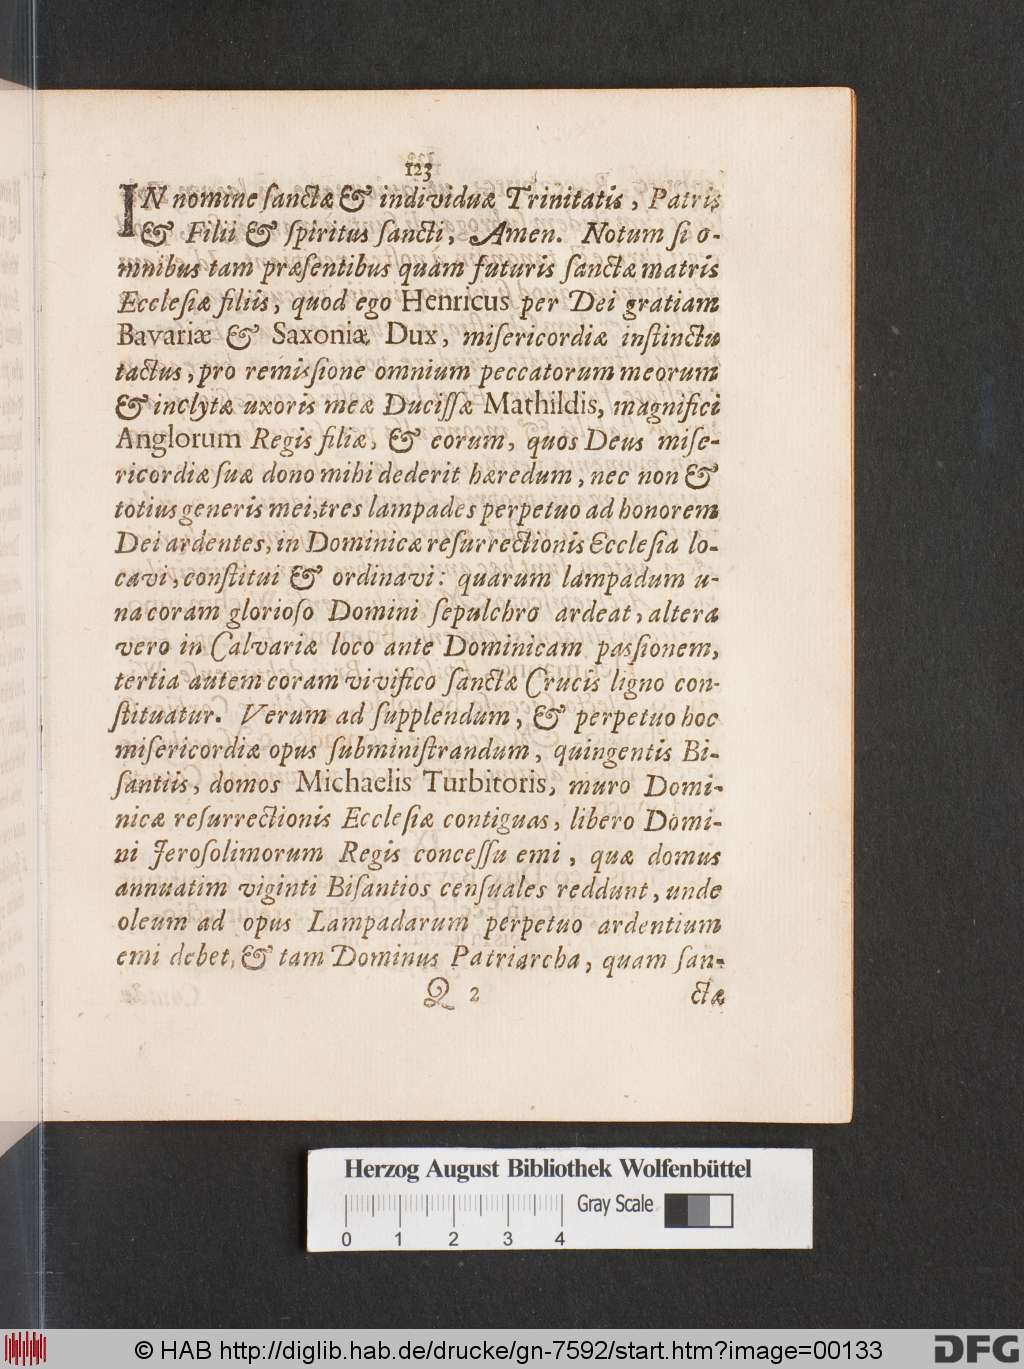 123
IN nomine ſanctæ & individuæ Trinitatis, Patris
& Filii & ſpiritus ſancti, Amen. Notum ſi o-
mnibus tam præſentibus quam futuris ſanctæ matris
Eccleſiæ filiis, quod ego Henricus per Dei gratiam
Bavariæ & Saxoniæ Dux, miſericordiæ inſtinctu
tactus, pro remiſſione omnium peccatorum meorum
& inclytæ uxoris meæ Duciſſæ Mathildis, magnifici
Anglorum Regis filiæ, & eorum, quos Deus miſe-
ricordiæ ſuæ dono mihi dederit hæredum, nec non &
totius generis mei, tres lampades perpetuo ad honorem
Dei ardentes, in Dominicæ reſurrectionis Eccleſia lo-
cavi, conſtitui & ordinavi: quarum lampadum u-
na coram glorioſo Domini ſepulchro ardeat, altera
vero in Calvariæ loco ante Dominicam paſſionem,
tertia autem coram vivifico ſanctæ Crucis ligno con-
ſtituatur. Verum ad ſupplendum, & perpetuo hoc
miſericordiæ opus ſubminiſtrandum, quingentis Bi-
ſantiis, domos Michaelis Turbitoris, muro Domi-
nicæ reſurrectionis Eccleſiæ contiguas, libero Domi-
ni Jeroſolimorum Regis conceſſu emi, quæ domus
annuatim viginti Biſantios cenſuales reddunt, unde
oleum ad opus Lampadarum perpetuo ardentium
emi debet, & tam Dominus Patriarcha, quam ſan-
Q 2 ctæ
Herzog August Bibliothek Wolfenbüttel
Gray Scale
0 1 2 3 4
© HAB http://diglib.hab.de/drucke/gn-7592/start.htm?image=00133
DFG